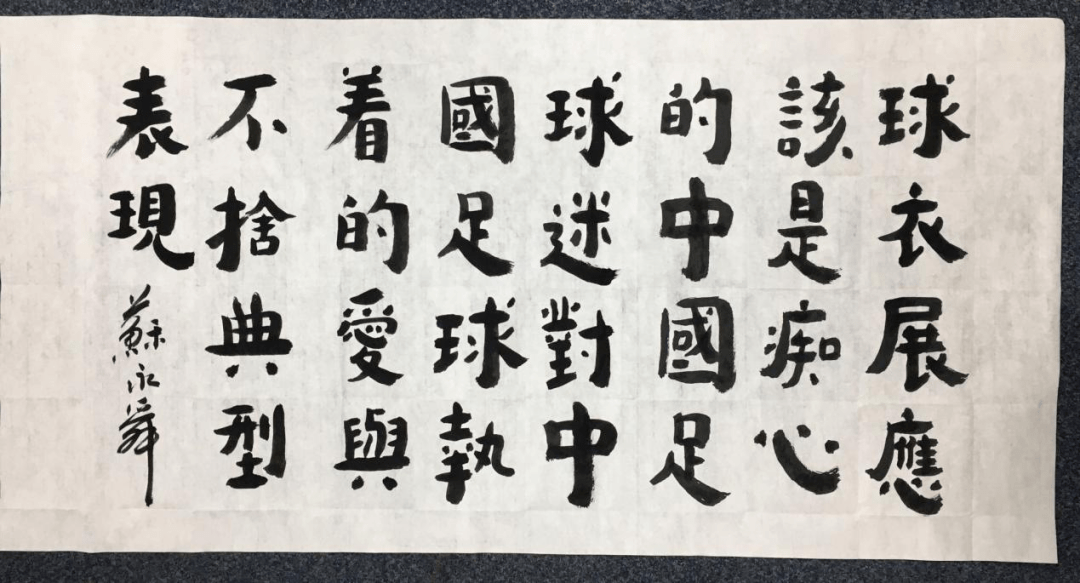 球衣展應
該是痴心
的中國足
球迷對中
國足球執
着的愛與
不捨典型
表現
蘇永舜